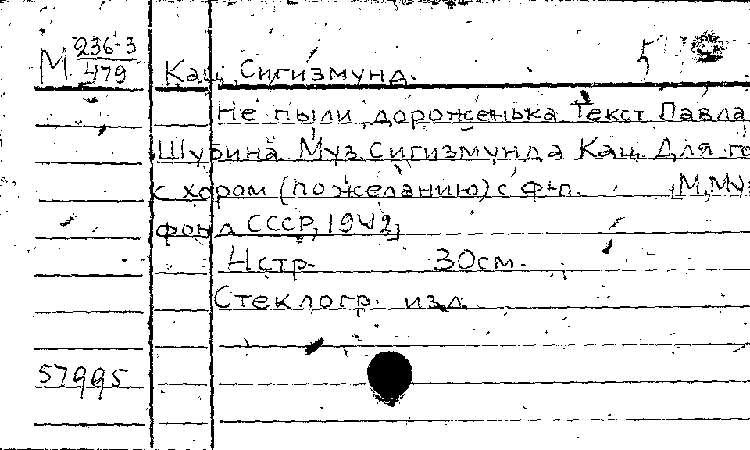 М 236-3
479
Кац, Сигизмунд. 5
Не пыли, дороженька. Текст Павла
Шубина. Муз. Сигизмунда Кац. Для го
с хором (по желанию) с ф-п. М, Муз
фонд СССР, 1942,
4 стр. 30 см.
Стеклогр. изд.
57995